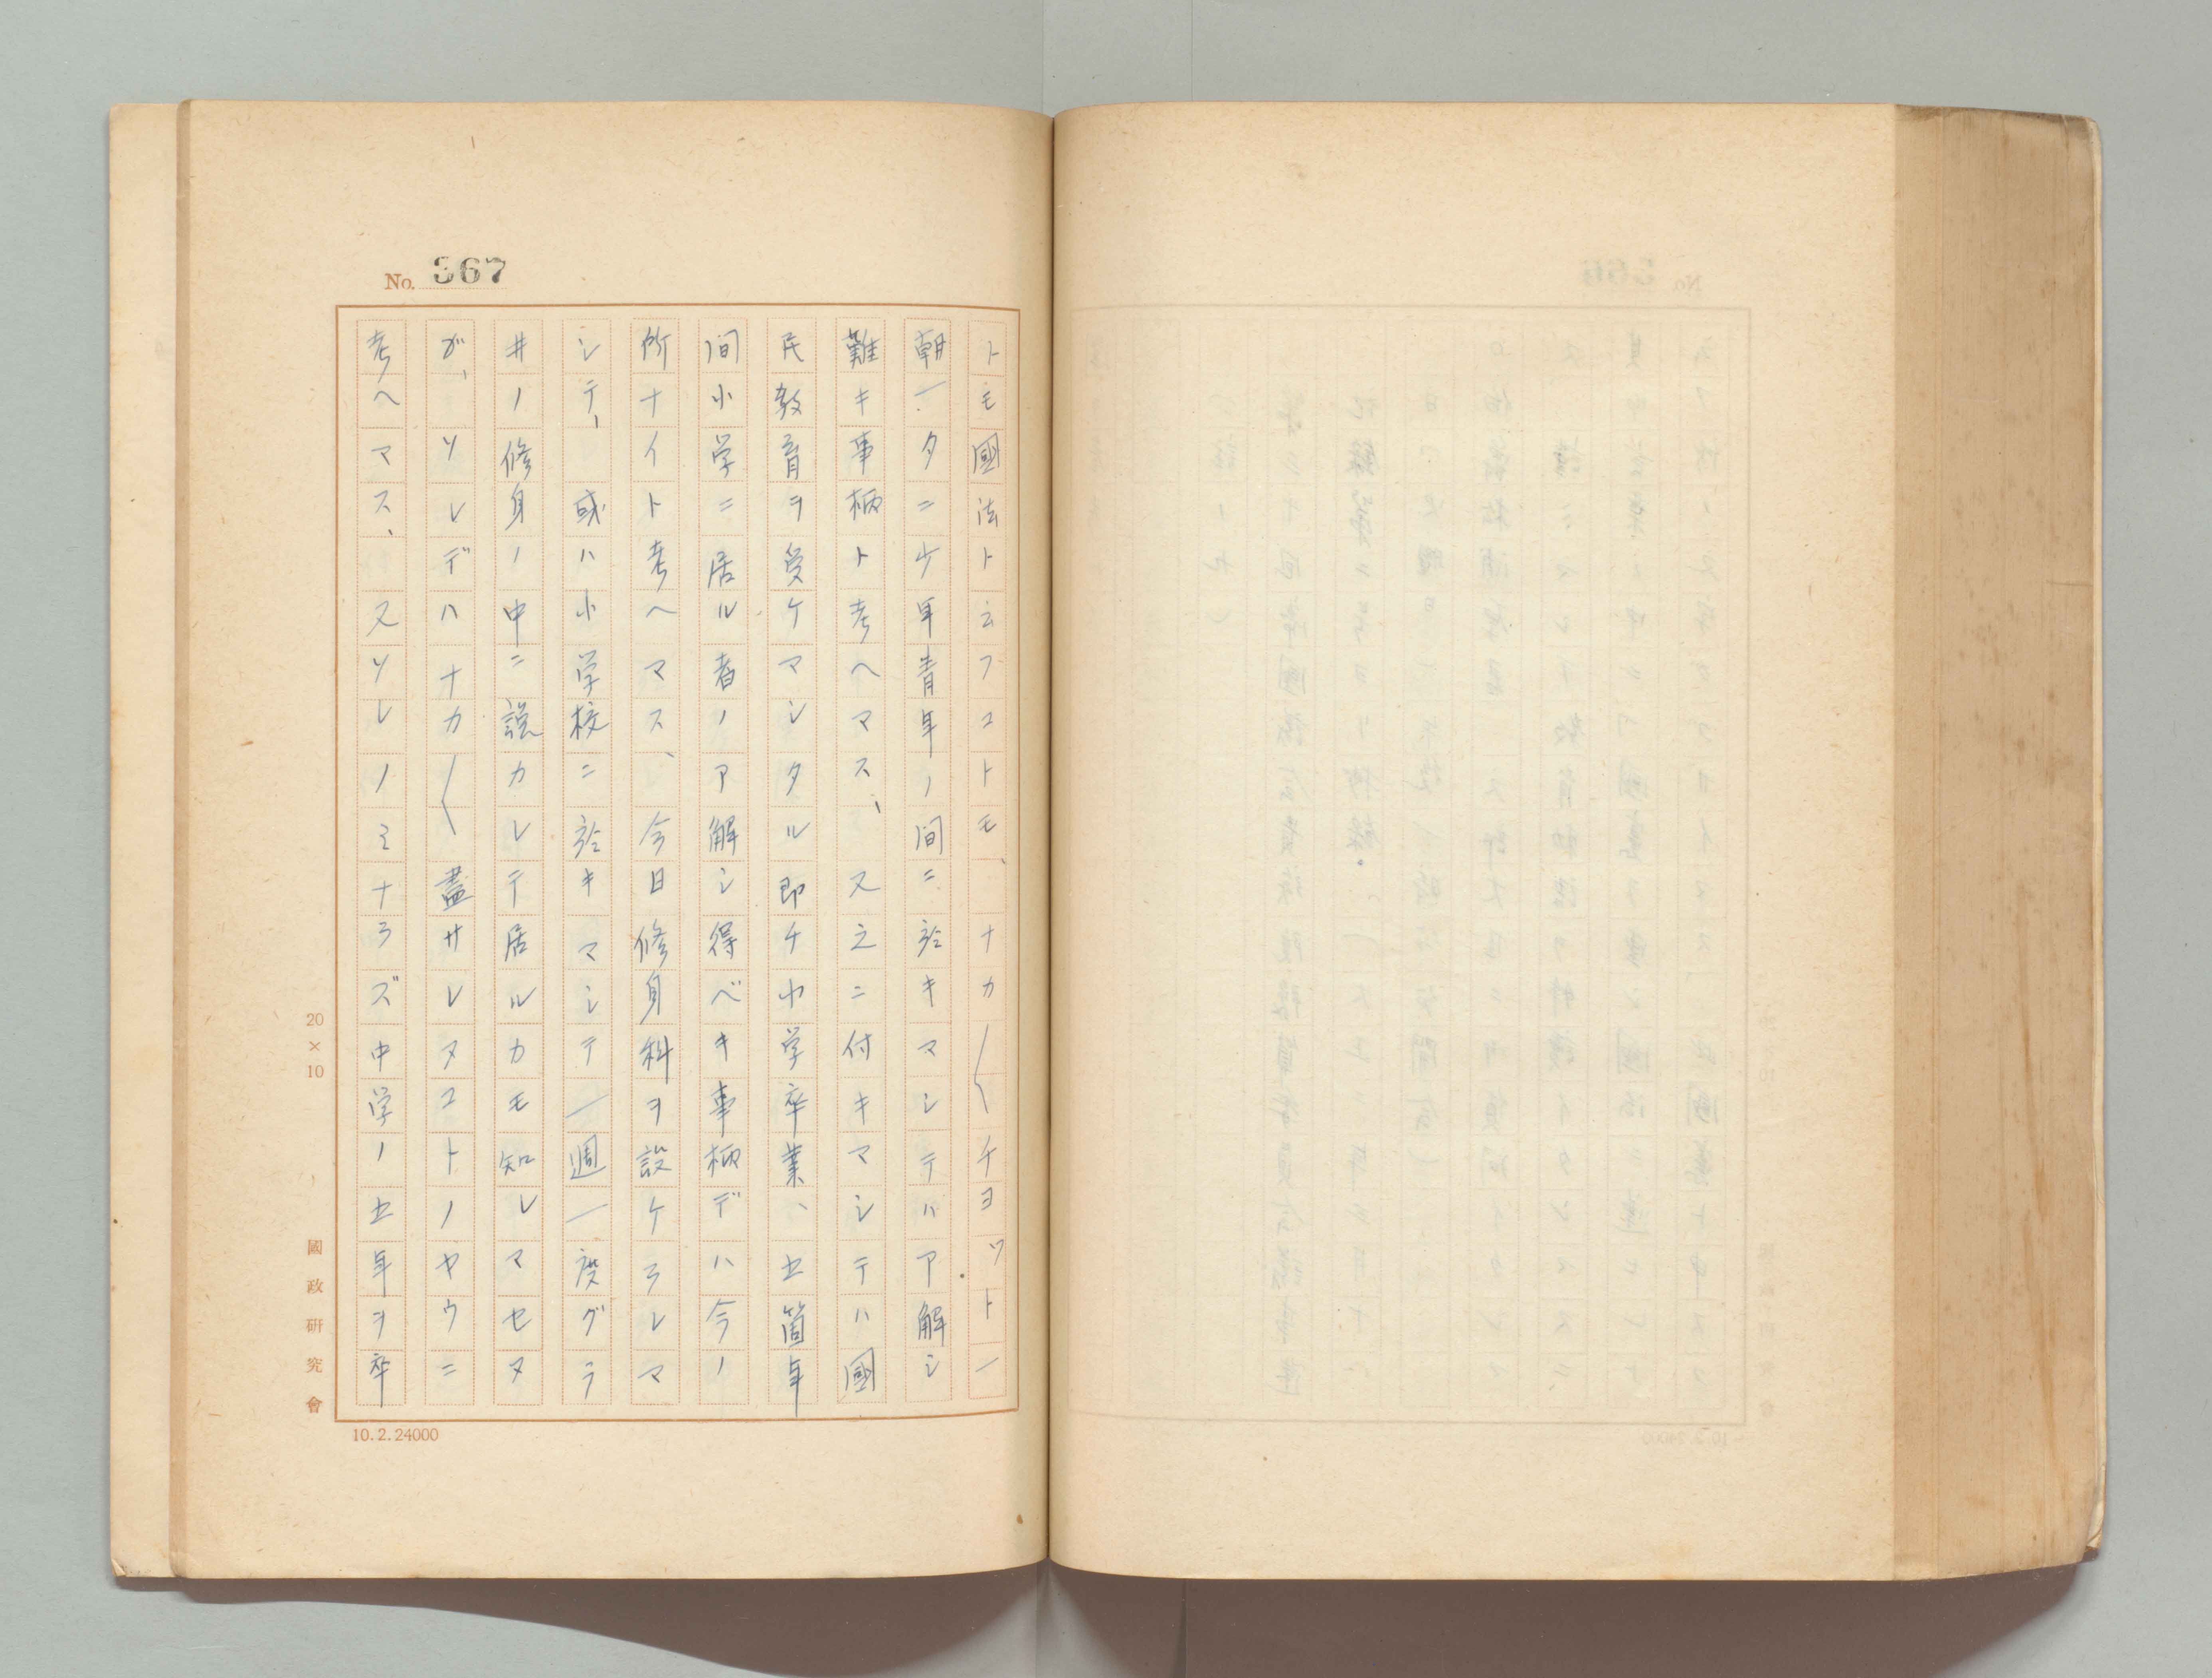 No. 367
トモ國法ト云フコトモ、ナカ〱チヨツト一
朝一夕ニ少年青年ノ間ニ於キマシテハア解シ
難キ事柄ト考ヘマス、又之ニ付キマシテハ國
民教育ヲ受ケマシタル即チ小学卒業、七箇年
間小学ニ居ル者ノア解シ得ベキ事柄デハ今ノ
所ナイト考ヘマス、今日修身科ヲ設ケラレマ
シテ、或ハ小学校ニ於キマシテ一週一度グラ
井ノ修身ノ中ニ説カレテ居ルカモ知レマセヌ
ガ、ソレデハナカ〱盡サレヌコトノヤウニ
考ヘマス、又ソレノミナラズ中学ノ七年ヲ卒
20×10
國政研究會
10.2.24000